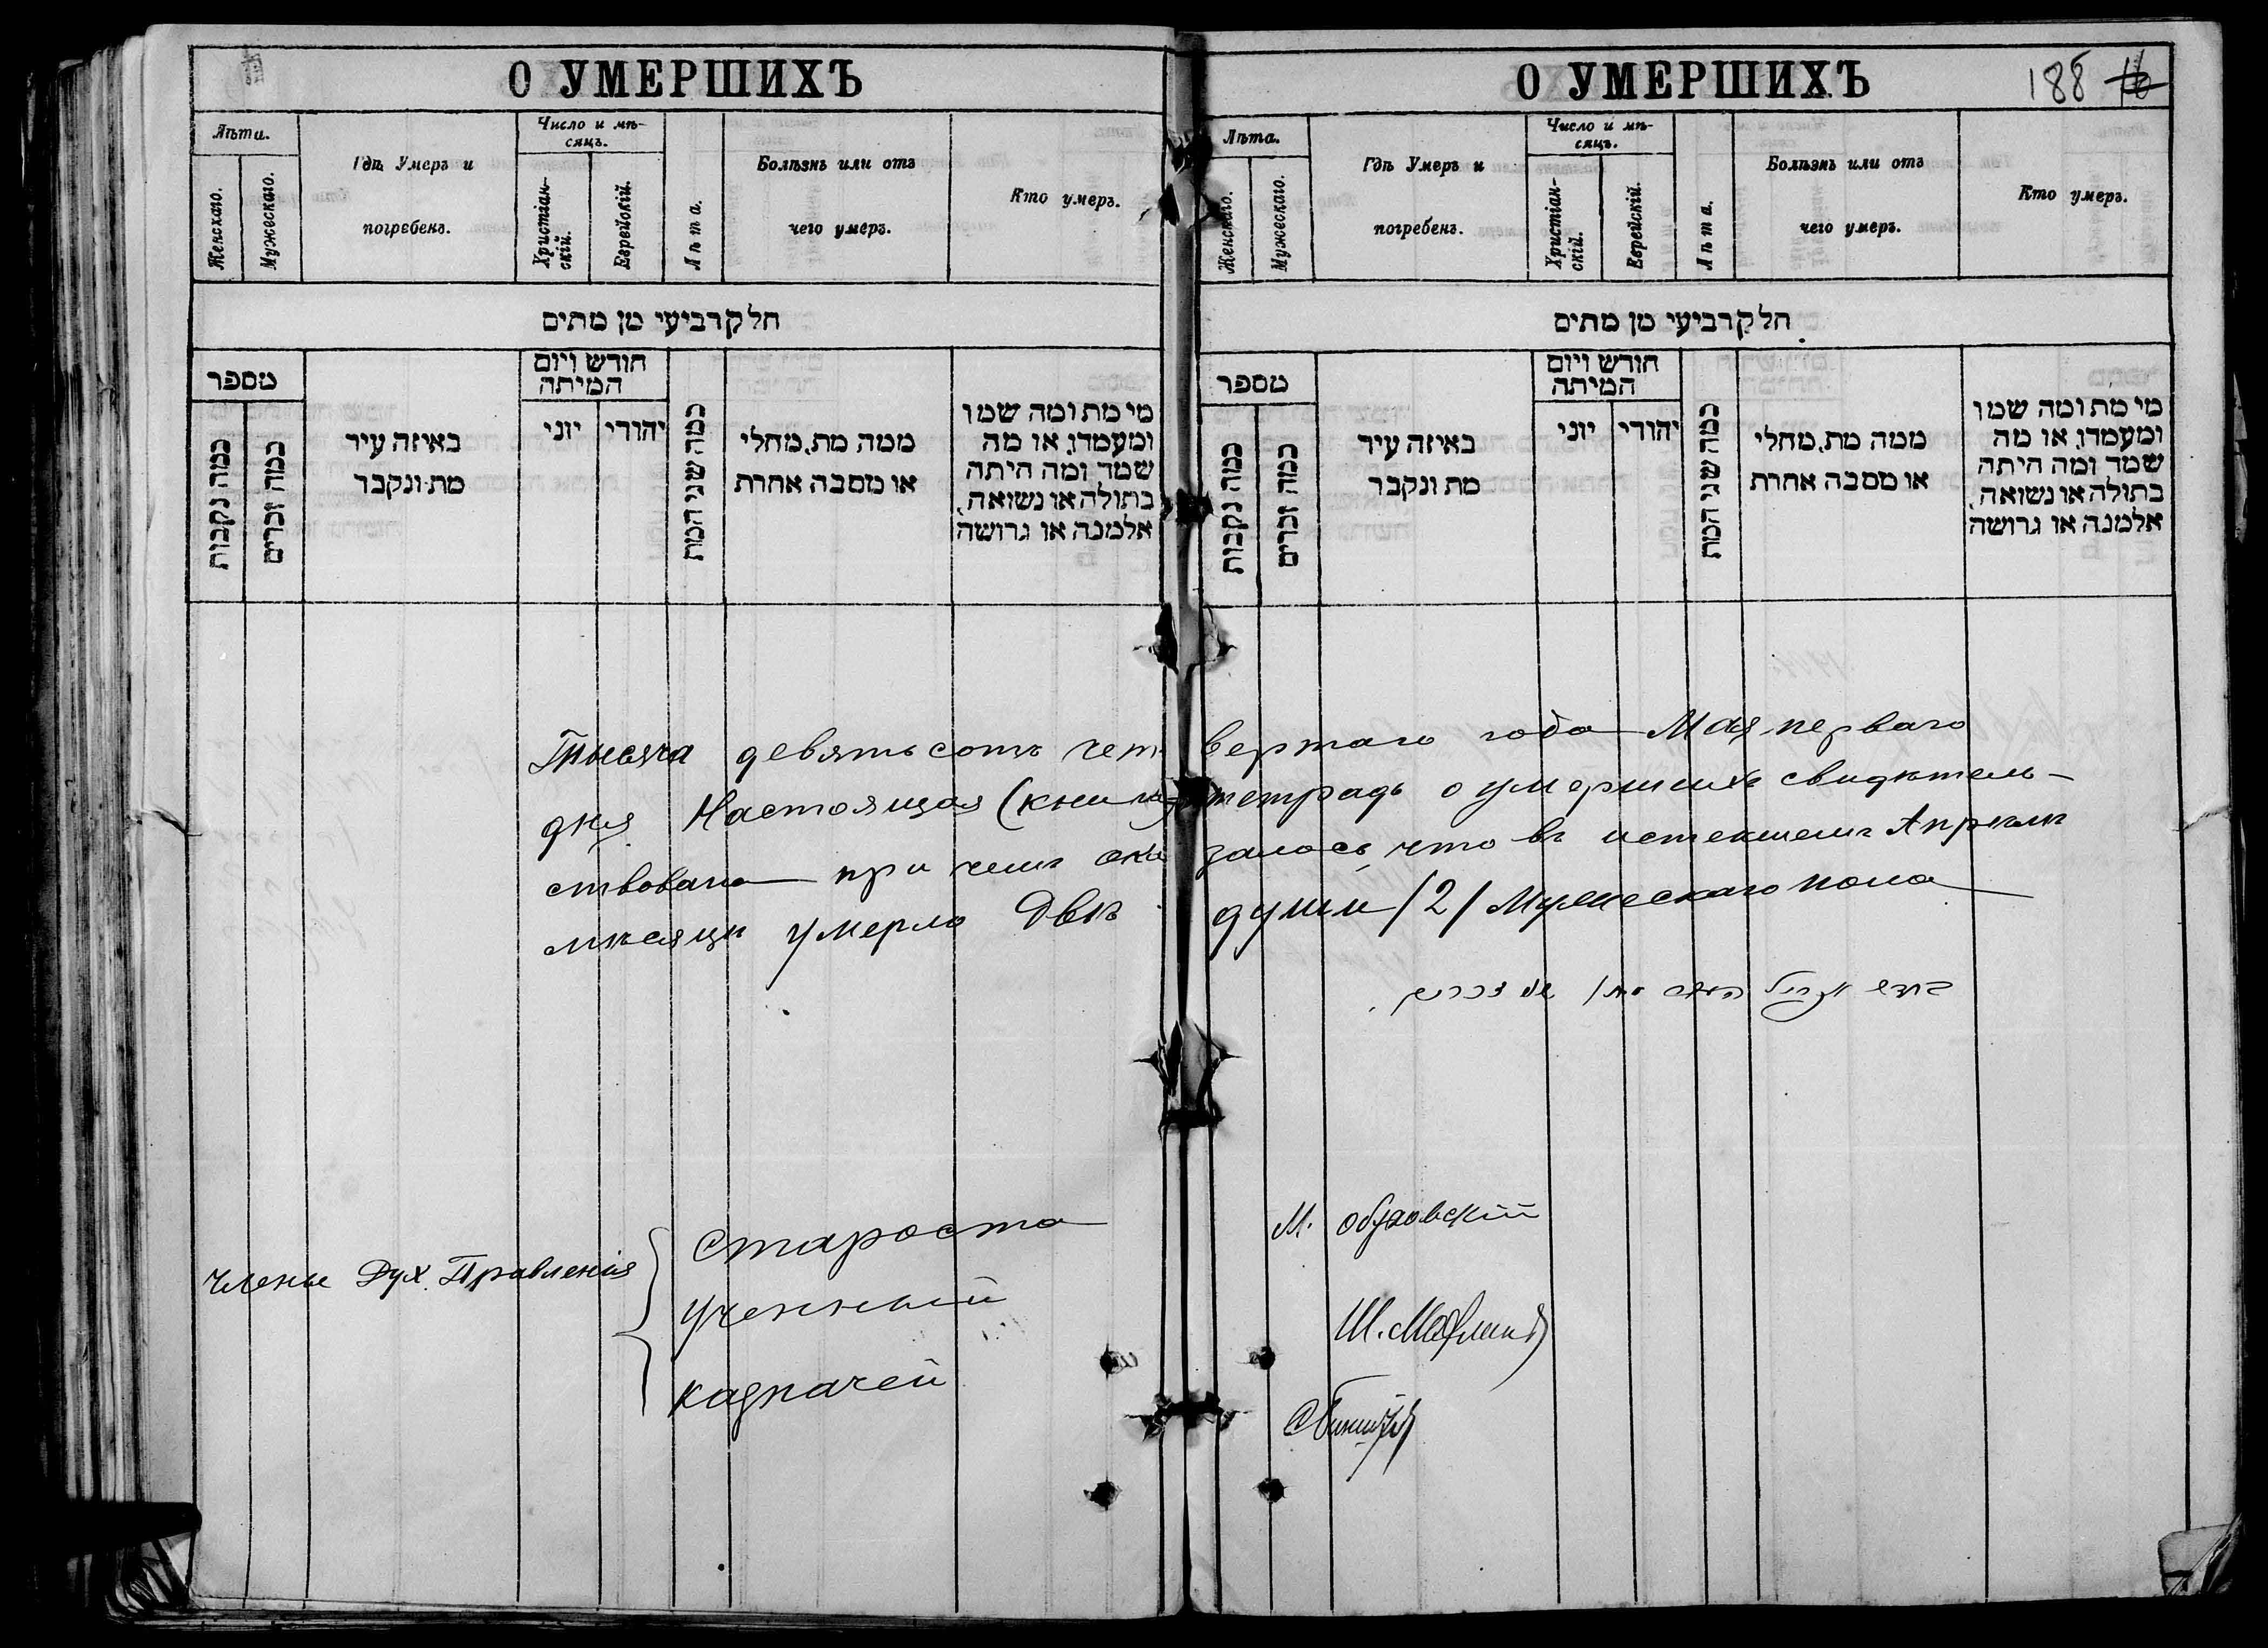 О УМЕРШИХЪ
Лѣта.
Женскаго.
Мужескаго.
Гдѣ Умеръ и
погребенъ.
Число и мѣ-
сяцъ.
Христіан-
скій.
Еврейскій.
Лѣта.
Болѣзнь или отъ
чего умеръ.
Кто умеръ.
חלק רביעי מן מתים
מספר
כמה נקבות
כמה זכרים
באיזה עיר
מת ונקבר
חודש ויום
המיתה
יוני
יהודי
כמה שני המת
ממה מת, מחלי
או מסבה אחרת
מי מת ומה שמו
ומעמדו, או מה
שמה ומה היתה
בתולה או נשואה,
אלמנה או גרושה
О УМЕРШИХЪ
188
Лѣта.
Женскаго.
Мужескаго.
Гдѣ Умеръ и
погребенъ.
Число и мѣ-
сяцъ.
Христіан-
скій.
Еврейскій.
Лѣта.
Болѣзнь или отъ
чего умеръ.
Кто умеръ.
חלק רביעי מן מתים
מספר
כמה נקבות
כמה זכרים
באיזה עיר
מת ונקבר
חודש ויום
המיתה
יוני
יהודי
כמה שני המת
ממה מת, מחלי
או מסבה אחרת
מי מת ומה שמו
ומעמדו, או מה
שמה ומה היתה
בתולה או נשואה,
אלמנה או גרושה
Тысяча девятьсотъ четвертаго года Мая перваго
дня Настоящая (книга) тетрадь о умершихъ свидѣтель-
ствована при чемъ оказалось, что въ истекшемъ Апрѣлѣ
мѣсяцѣ умерло Двѣ души /2/ Мужескаго пола
Члены Дух. Правленія
Староста М. Обуховскій
Ученный Ш.
Казначей